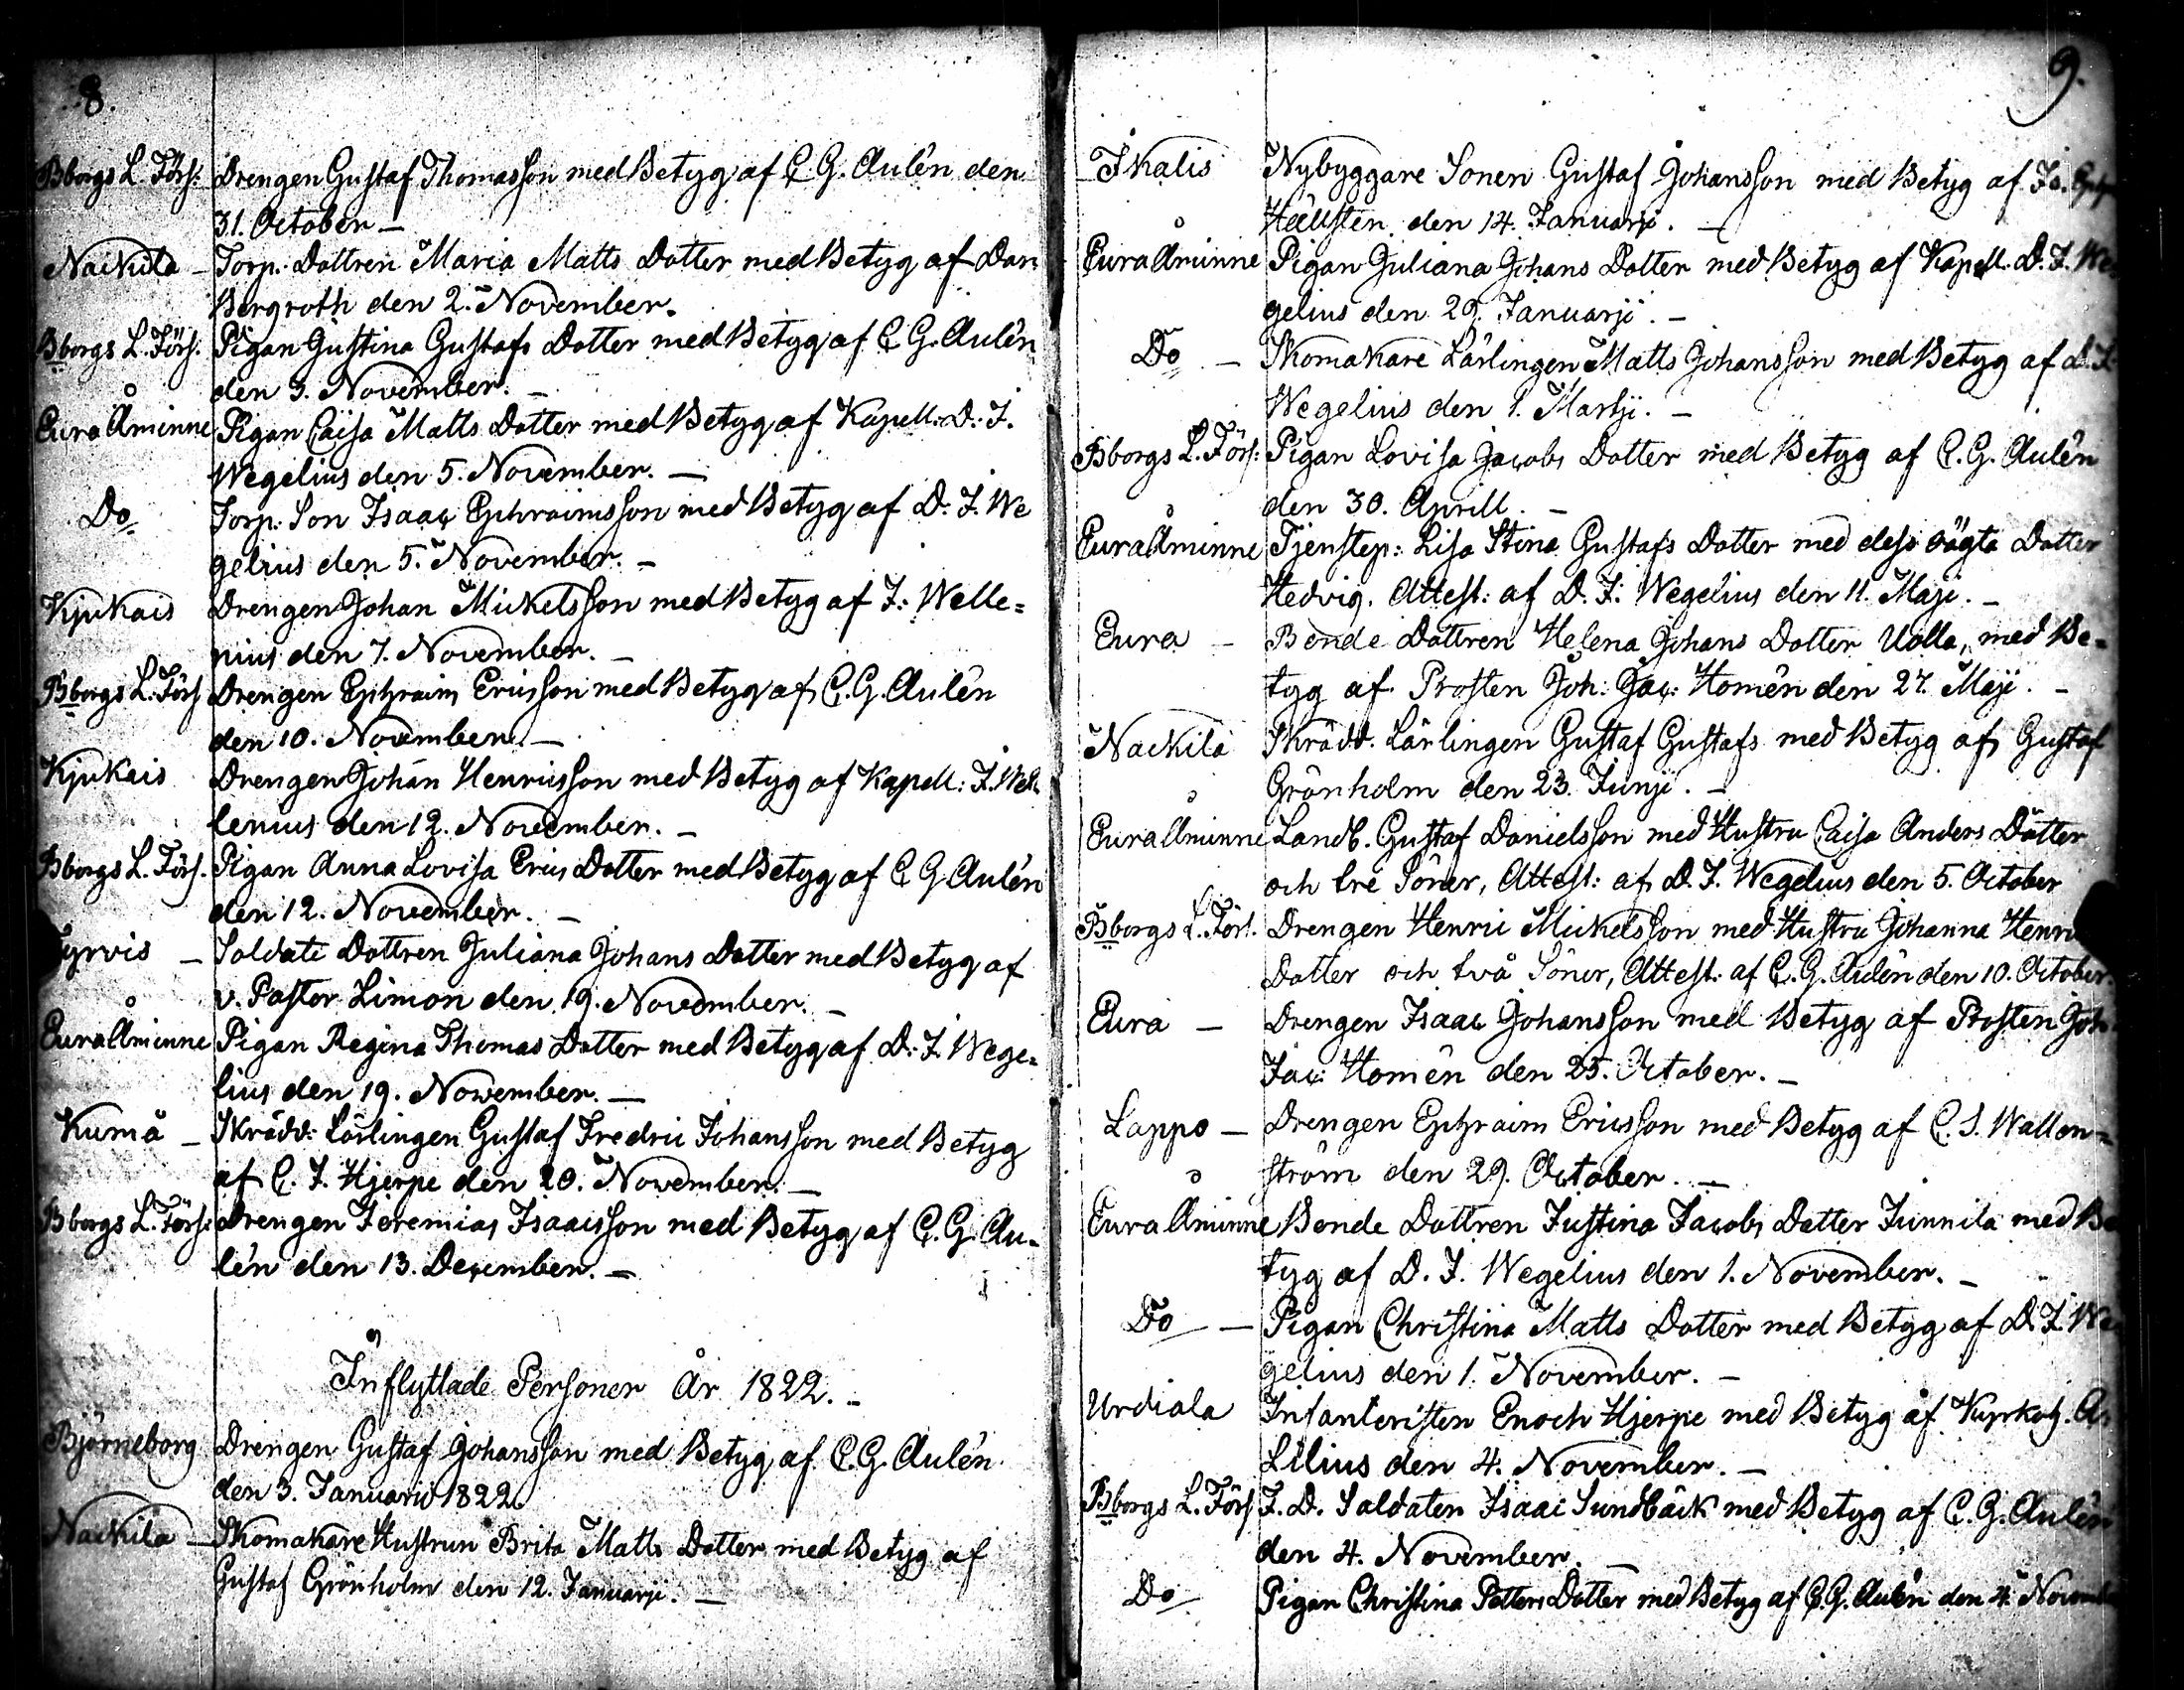 8.
Bborgs L. Förs: Drengen Gustaf Thomasson med Betyg af C. G. Aulén den
31. October —
Nackila — Torp. Dottren Maria Matts Dotter med Betyg af Dan
Bergroth den 2. November.
Bborgs L. Förs. Pigan Gustina Gustafs Dotter med Betyg af C G. Aulén
den 3. November. —
Eura Åminne Pigan Caisa Matts Dotter med Betyg af Kapell: D: J.
Wegelius den 5. November. —
Do Torp: Son Isaac Ephraimsson med Betyg af D. J. We
gelius den 5. November. —
Kjukais Drengen Johan Mickelsson med Betyg af J: Welle=
nius den 7. November. —
Bborgs L. Förs Drengen Ephraim Ericsson med Betyg af C. G. Aulén
den 10. November. —
Kjukais Drengen Johan Henricsson med Betyg af Kapell: J. Wel-
lenius den 12. November. —
Bborgs L. Förs. Pigan Anna Lovisa Erics Dotter med Betyg af C G Aulén
den 12. November. —
Tyrvis — Soldate Dottren Juliana Johans Dotter med Betyg af
v. Pastor Limon den 19. November. —
Eura Åminne Pigan Regina Thomas Dotter med Betyg af D. J. Wege=
lius den 19. November. —
Kumå — Skrädd: Lärlingen Gustaf Fredric Johansson med Betyg
af C. J. Hjerpe den 20. November. —
Bborgs L. Förs: Drengen Jeremias Isaacsson med Betyg af C. G. Au=
lén den 13. December. —
Inflyttade Personer År 1822. —
Björneborg Drengen Gustaf Johansson med Betyg af C. G. Aulén
den 3. Januarii 1822.
Nackila — Skomakare Hustrun Brita Matts Dotter med Betyg af
Gustaf Grönholm den 12. Januarji. —
9.
Ikalis Nybyggare Sonen Gustaf Johansson med Betyg af Jo.
Hällsten den 14. Januarji. —
Eura Åminne Pigan Juliana Johans Dotter med Betyg af Kapell. D. J. We-
gelius den 29. Januarji. —
Do — Skomakare Lärlingen Matts Johansson med Betyg af D. J.
Wegelius den 1. Martji. —
Bborgs L. Förs: Pigan Lovisa Jacobs Dotter med Betyg af C. G. Aulén
den 30. Aprill. —
Eura Åminne Tjenstep: Lisa Stina Gustafs Dotter med dess oägta Dotter
Hedvig. Attest: af D. J. Wegelius den 11. Maji. —
Eura — Bonde Dottren Helena Johans Dotter Uolla, med Be=
tyg af Prosten Joh: Jac: Homén den 27. Maji. —
Nackila Skrädd. Lärlingen Gustaf Gustafs med Betyg af Gustaf
Grönholm den 23. Junji. —
Eura Åminne Landb. Gustaf Danielsson med Hustru Caisa Anders Dotter
och tre Söner, Attest: af D. J. Wegelius den 5. October
Bborgs L. Förs. Drengen Henric Mickelsson med Hustru Johanna Henrics
Dotter och två Söner, Attest: af C. G. Aulén den 10. October.
Eura — Drengen Isaac Johansson med Betyg af Prosten Joh.
Jac: Homén den 25. October. —
Lappo — Drengen Ephraim Ericsson med Betyg af C. S. Wallen=
ström den 29. October. —
Eura Åminne Bonde Dottren Justina Jacobs Dotter Junnila med Be
tyg af D. J. Wegelius den 1. November. —
Do — Pigan Christina Matts Dotter med Betyg af D. J. We
gelius den 1. November. —
Urdiala Infanteristen Enoch Hjerpe med Betyg af Kyrkoh.
Lilius den 4. November. —
Bborgs L. Förs J. D. Soldaten Isaac Sundbäck med Betyg af C. G. Aulén
den 4. November. —
Do Pigan Christina Petters Dotter med Betyg af C. G. Aulén den 4. Novemb